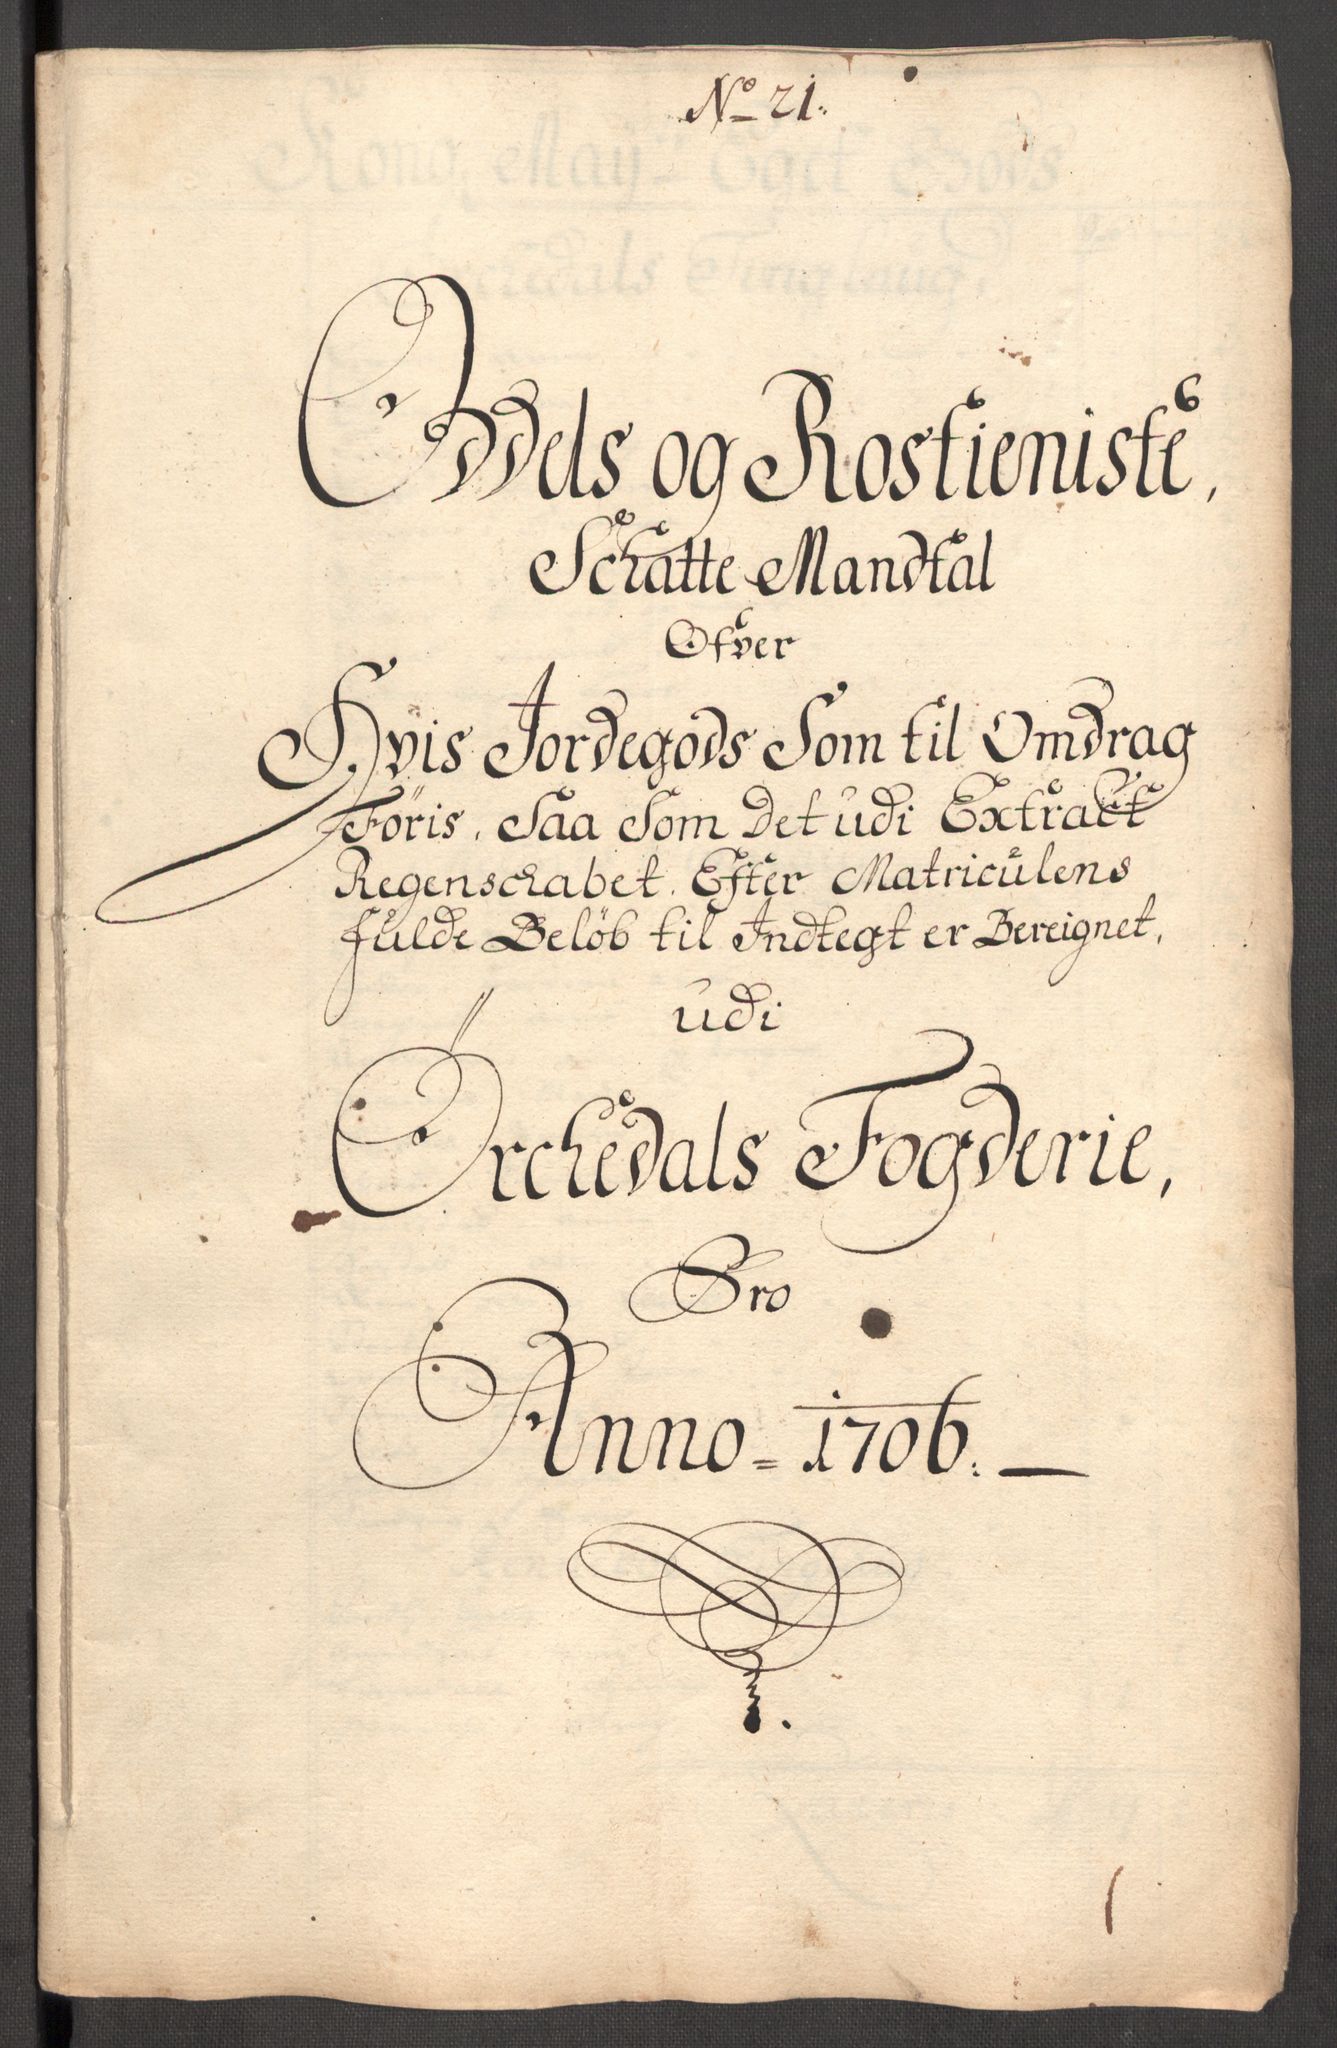 No 21.
Oddels og Rostieniste,
Schatte Mandtal
Ofver
Hvis Jordegods Som til Omdrag
Föris, Saa Som det udi Extract
Regenschabet Efter Matriculens
fulde Belöb til Indtegt er Bereignet,
udi
Örchedals Fogderie,
Pro
Anno = 1706. —